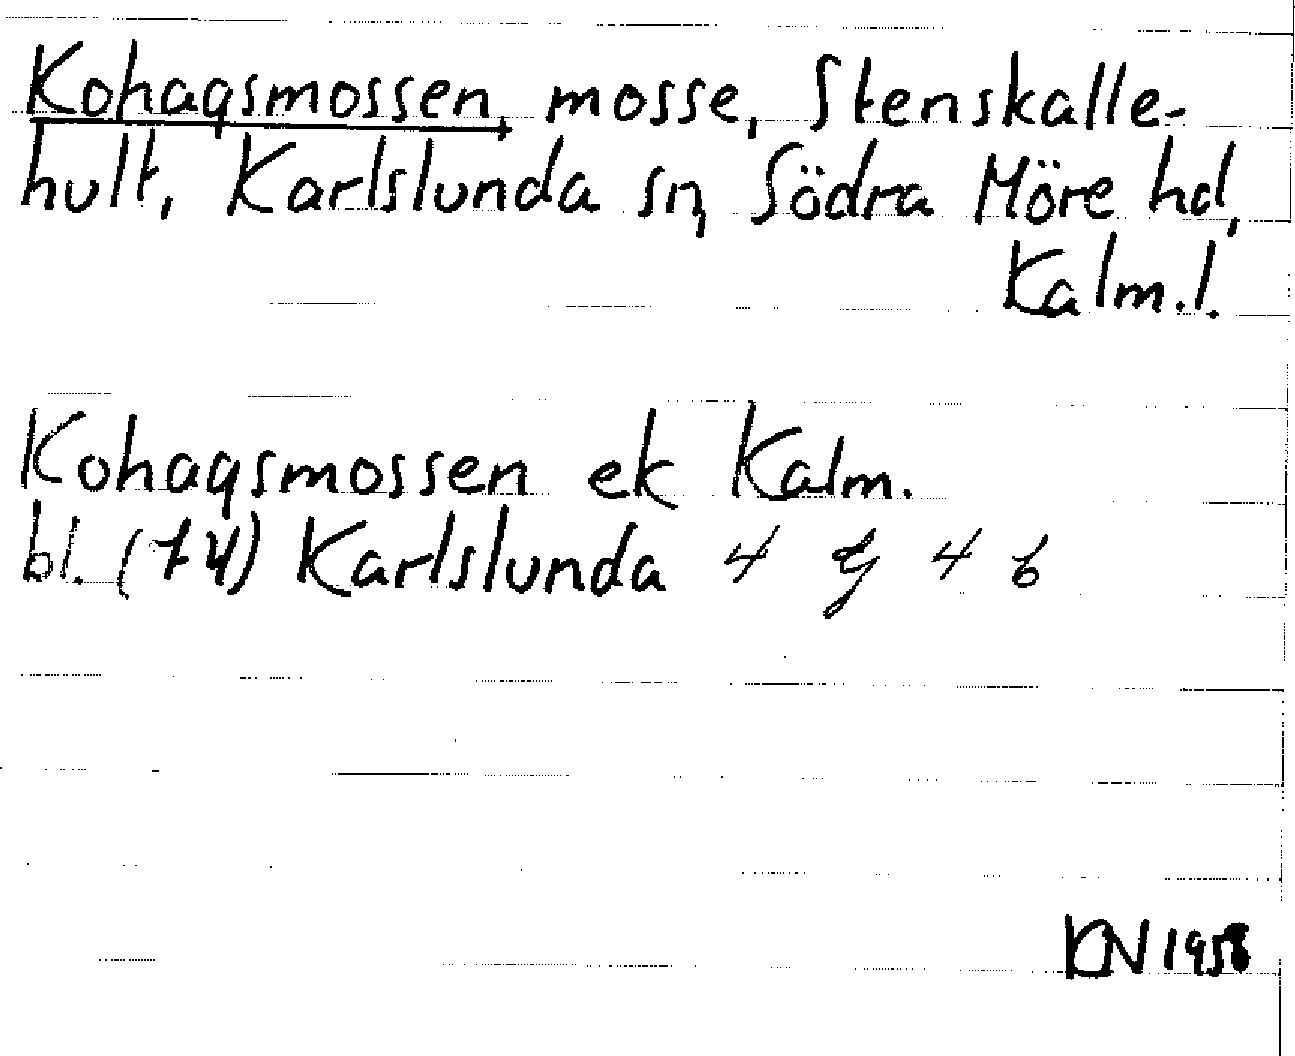 Kohagsmossen, mosse, Stenskalle-
hult, Karlslunda sn, Södra Möre hd,
Kalm.l.
Kohagsmossen ek Kalm.
bl. (74) Karlslunda 4 G 4 b
KN 1958